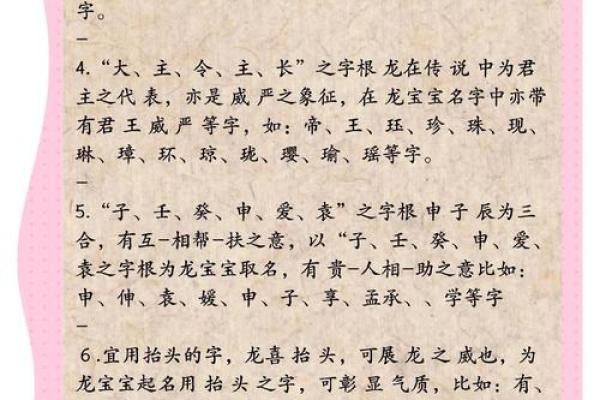 字。
-
4.“大、主、令、主、长”之字根 龙在传 说 中为君
主之代 表，亦是 威 严之象征，在 龙宝宝名字中亦带
有君 王 威 严 等字，如：帝、王、珏、珍、珠、现、
琳、璋、环、琼、珑、璎、瑜、瑶等字。
-
5.“子、壬、癸、申、爱、袁”之字根 申 子 辰为三
合，有互-相帮-扶之意，以“子、壬、癸、申、爱、
袁之字根为龙宝宝取名，有 贵-人相-助之意比如：
申、伸、袁、媛、申、子、享、孟承、、学等字
-
６.宜用抬头的字，龙喜 抬 头，可展 龙 之 威也，为
龙宝宝起名用 抬 头 之字，可彰 显 气质，比如：有、